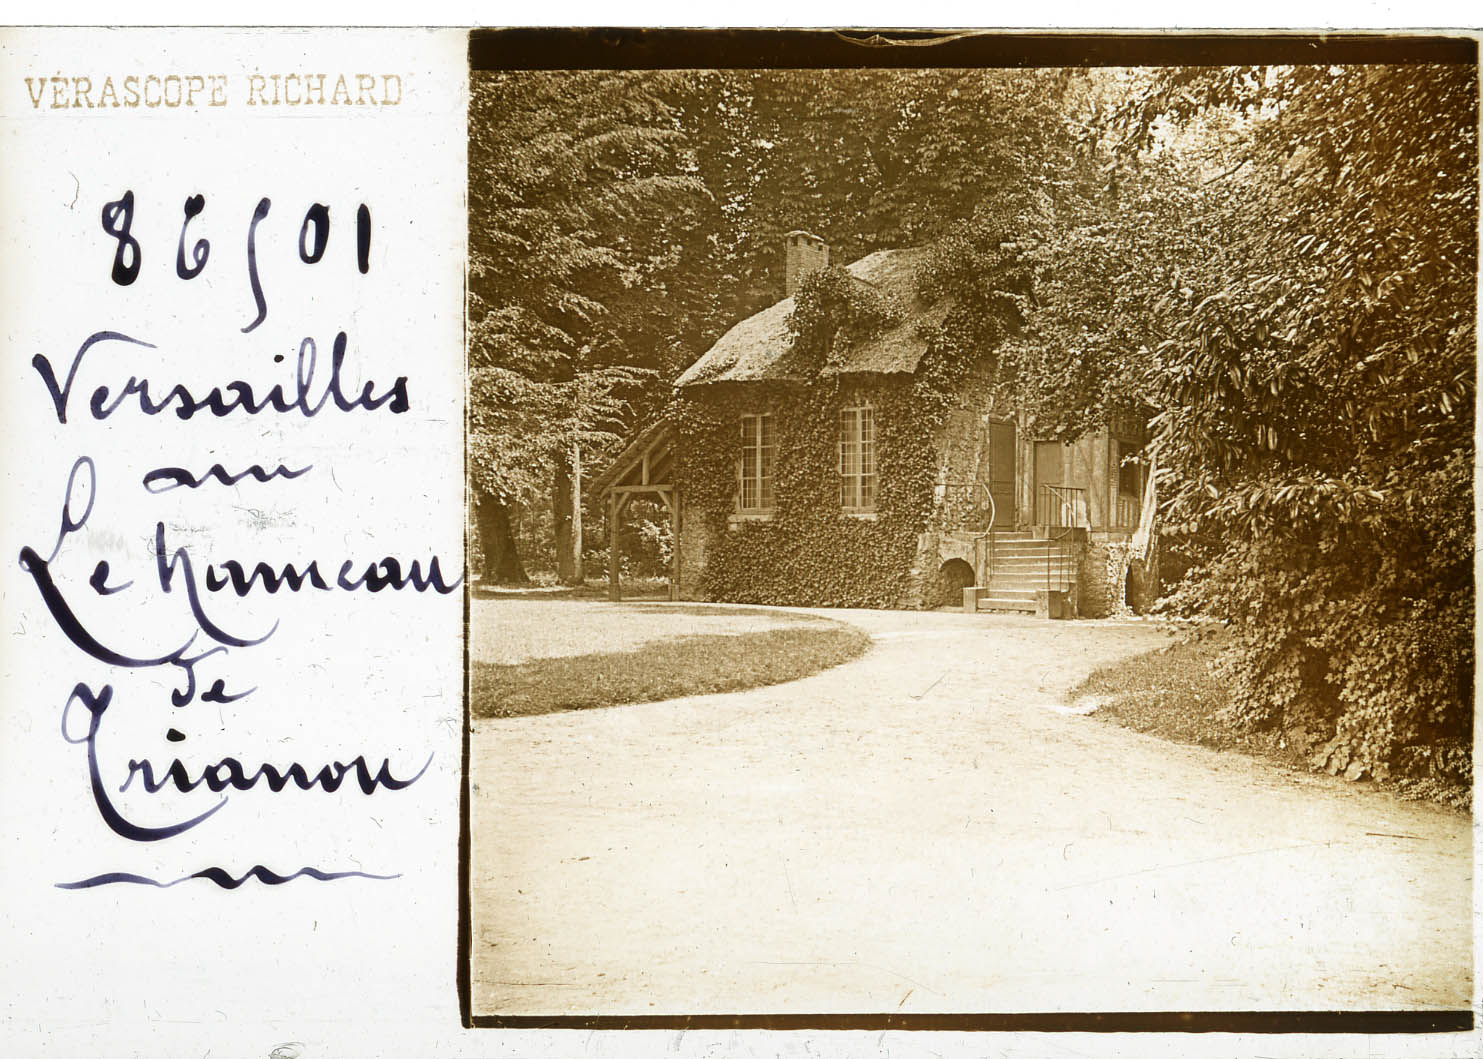 VÉRASCOPE RICHARD
86501
Versailles
au
Le hameau
de
Trianon